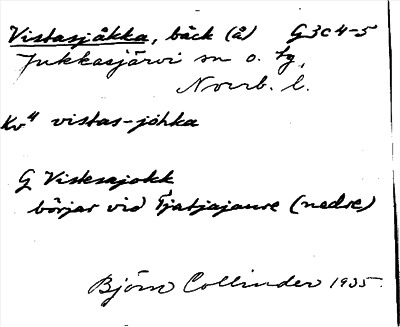 Vistasjåkka, bäck (å) G3c4-5
Jukkasjärvi sn o. tg,
Norrb. l.
Kv4 vistas-johka
G Vistesajokk
börjar vid Tjatjajaure (nedre)
Björn Collinder 1935